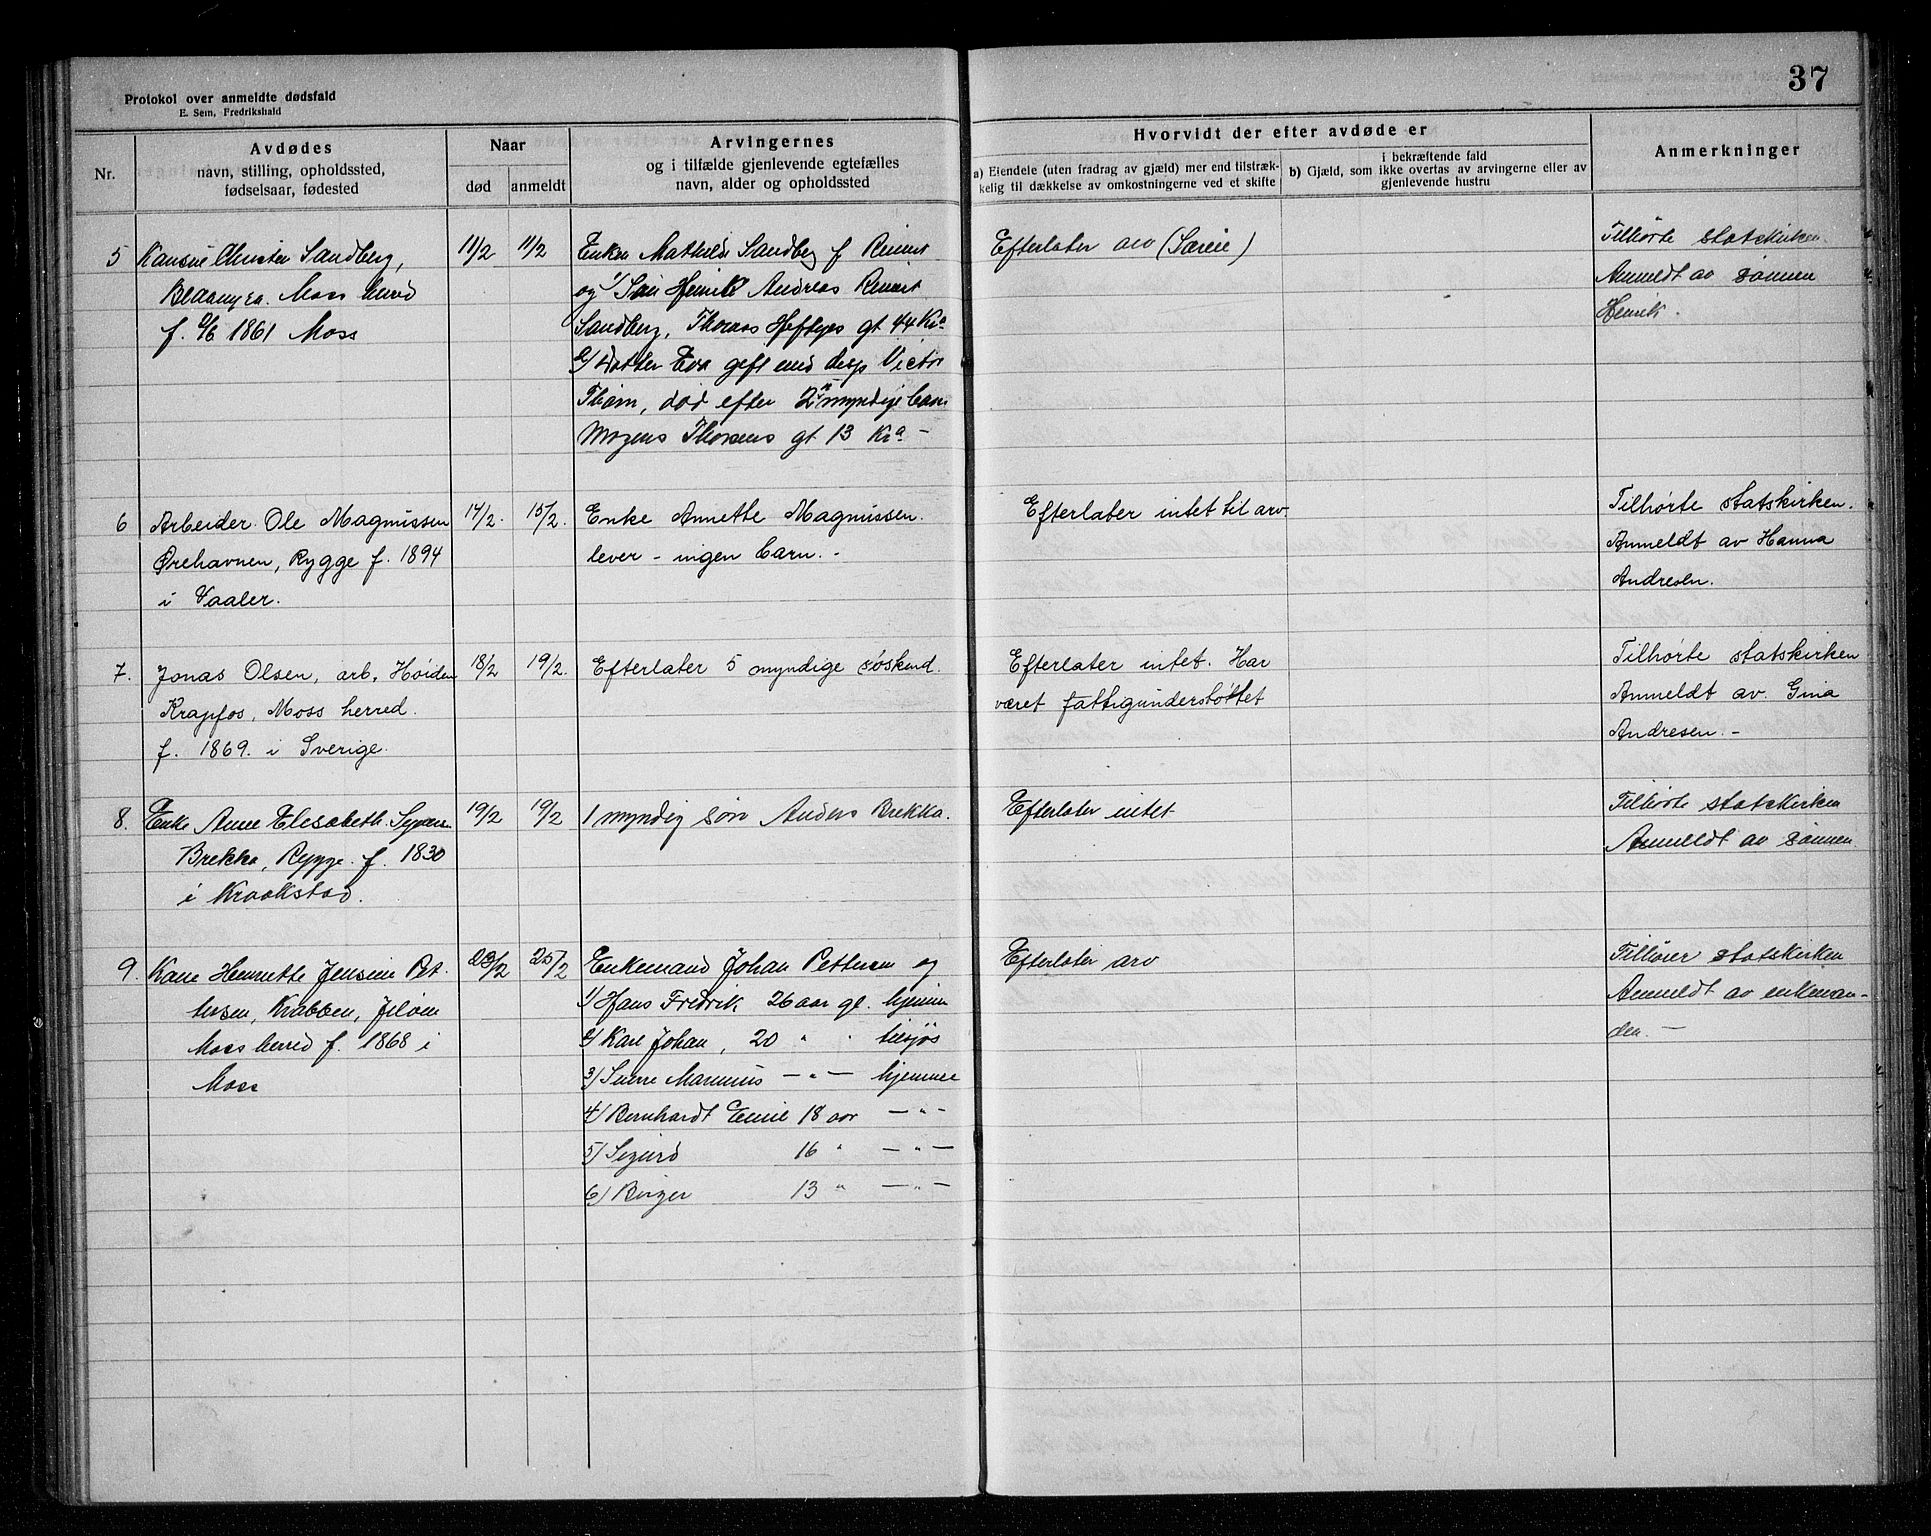 37
Protokol over anmeldte dødsfald
E. Sem, Fredrikshald
Nr.
Avdødes
navn, stilling, opholdssted,
fødselsaar, fødested
Naar
død
anmeldt
Arvingernes
og i tilfælde gjenlevende egtefælles
navn, alder og opholdssted
Hvorvidt der efter avdøde er
a) Eiendele (uten fradrag av gjæld) mer end tilstræk-
kelig til dækkelse av omkostningerne ved et skifte
i bekræftende fald
b) Gjæld, som ikke overtas av arvingerne eller av
gjenlevende hustru
Anmerkninger
5
Christen Sandberg,
Moss herred
f. 1861 Moss
11/2
11/2
Enken Mathilde Sandberg f. Reinert
og 1/ Søn Henrik Andreas Reinert
Sandberg, Thomas Heftyes gt 44 Kra
2/ Datter Eva gift med disp Victor
død efter 2 myndige barn
Mogens Thorsens gt 13 Kra -
Efterlater arv (Særeie)
Tilhørte statskirken.
Anmeldt av sønnen
Henrik.
6
Arbeider Ole Magnussen
Ørehavnen, Rygge f. 1894
i Vaaler.
14/2.
15/2.
Enke Annette Magnussen.
lever - ingen barn. -
Efterlater intet til arv.
Tilhørte statskirken.
Anmeldt av Hanna
Andresen.
7.
Jonas Olsen, arb, Høiden
Krapfos, Moss herred.
f. 1869. i Sverige.
18/2
19/2.
Efterlater 5 myndige søskend.
Efterlater intet. Har
været fattigunderstøttet
Tilhørte statskirken
Anmeldt av. Gina
Andresen. -
8.
Enke Anne Elisabeth
Brekka, Rygge. f. 1830
i Kraakstad.
19/2
19/2
1 myndig søn Anders Brekka.
Efterlater intet
Tilhørte statskirken
Anmeldt av sønnen
9.
Kone Henriette Jensine Pet-
tersen, Krabben, Jeløen
Moss herred f. 1868 i
Moss
23/2
25/2
Enkemand Johan Pettersen og
1) Hans Fredrik 26 aar gl. hjemme
2/ Karl Johan, 20 " " tilsjøs
3) Sverre Marinius - " - hjemme
4) Bernhardt Emil 18 aar - " -
5) Sigurd 16 " - " -
6) Birger 13 " - " -
Efterlater arv
Tilhører statskirken
Anmeldt av enkeman-
den. -